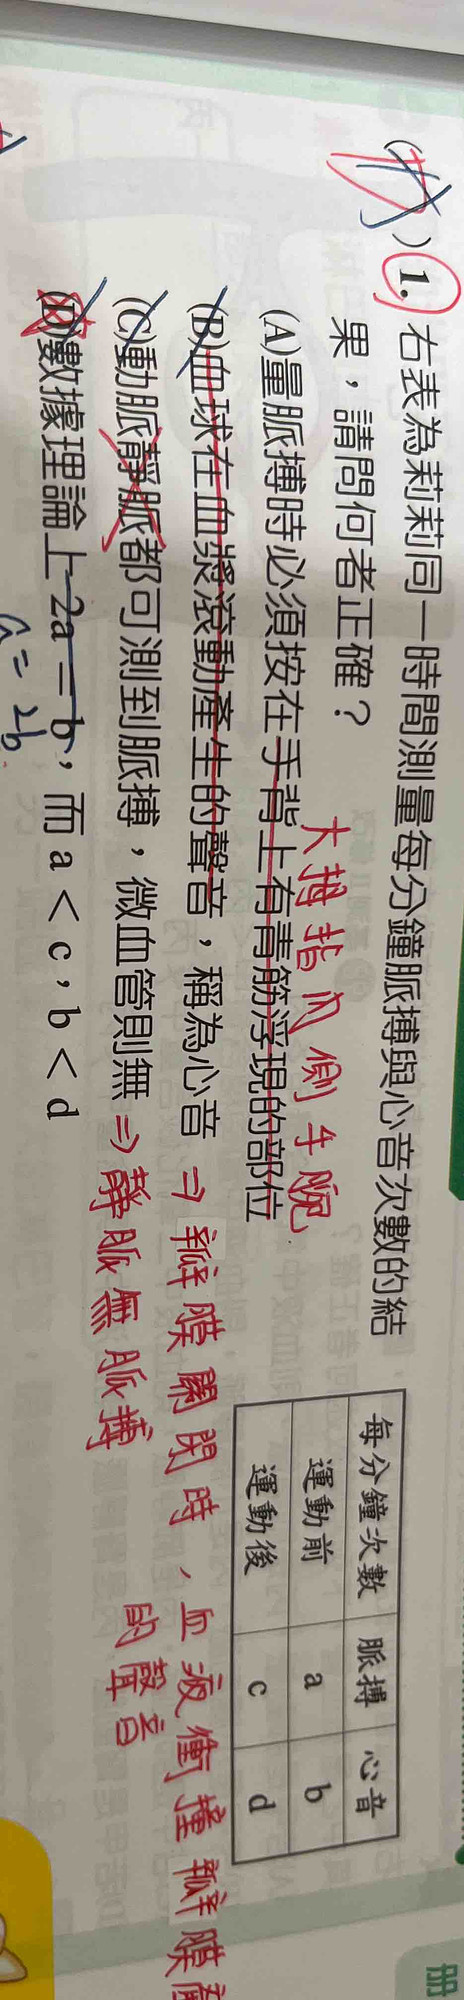 ( )1. 右表為莉莉同一時間測量每分鐘脈搏與心音次數的結
果，請問何者正確？
大拇指內側手腕
(A)量脈搏時必須按在手背上有青筋浮現的部位
(B)血球在血漿滾動產生的聲音，稱為心音 ⇒ 瓣膜關閉時、血液衝撞瓣膜
的聲音
(C)動脈靜脈都可測到脈搏，微血管則無 ⇒ 靜脈無脈搏
(D)數據理論上 2a = b，而 a < c，b < d
a = 2b
每分鐘次數 脈搏 心音
運動前 a b
運動後 c d
冊